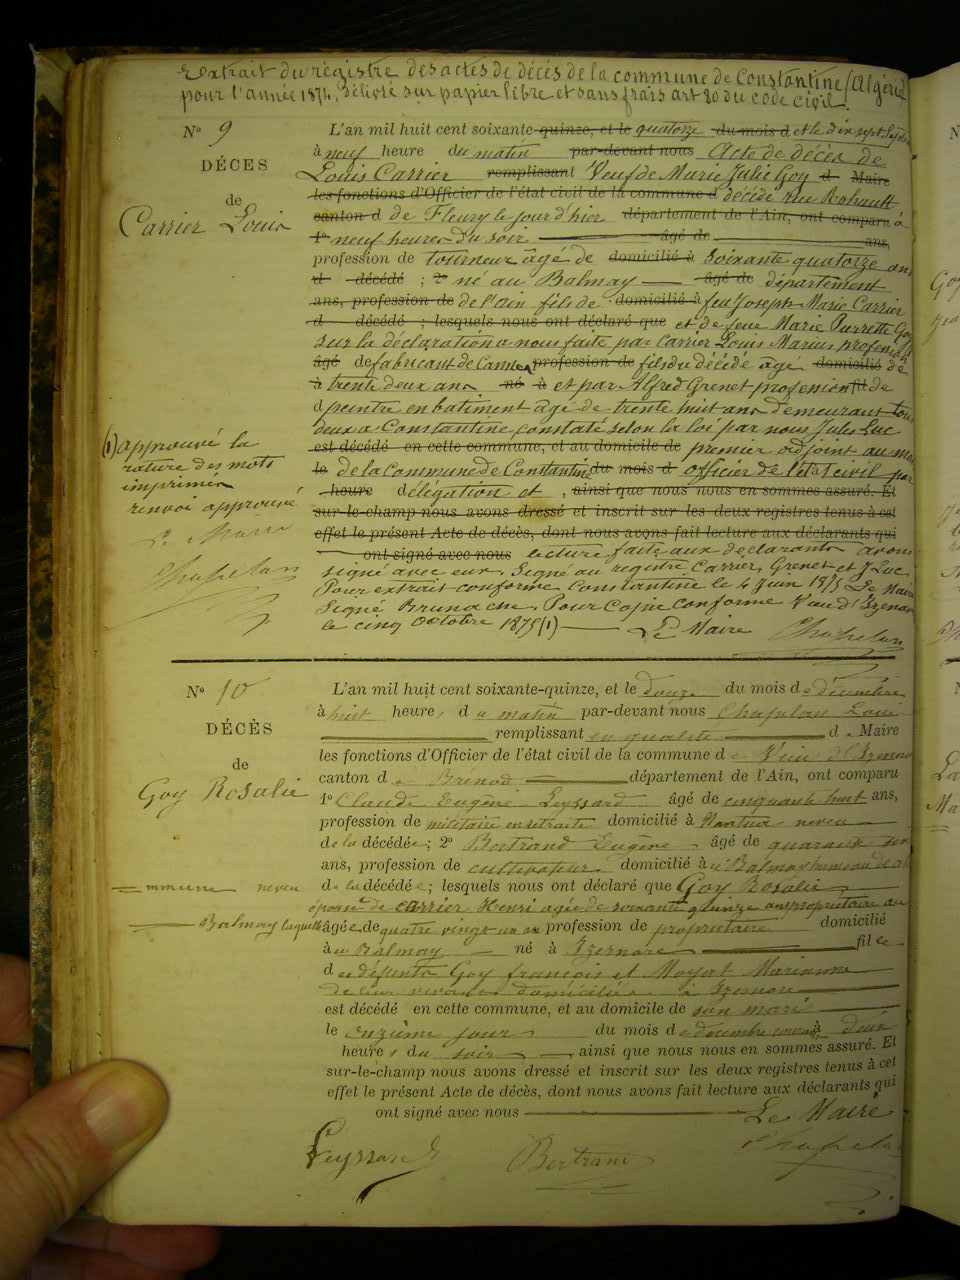 Extrait du régistre des actes de décès de la commune de Constantine (Algérie)
pour l'année 1874, délivré sur papier libre et sans frais art 80 du code civil.
N° 9
DÉCES
de
Carrier Louis
L'an mil huit cent soixante-quinze, et le quatorze du mois d et le dix sept
à neuf heure du matin par-devant nous Acte de décès de
Louis Carrier remplissant Veuf de Marie Julie Goy d Maire
les fonctions d'Officier de l'état civil de la commune d décédé rue Rohault
canton d de Fleury le jour d'hier département de l'Ain, ont comparu à
1° neuf heures du soir âgé de ans,
profession de tourneur âgé de domicilié à soixante quatorze ans
d décédé ; 2° né au Balmay âgé de département
ans, profession de de l'ain fils de domicilié à feu Joseph Marie Carrier
d décédé ; lesquels nous ont déclaré que et de feue Marie Pierrette Goy
sur la déclaration a nous faite par Carrier Louis Marius profession
âgé de fabricant de profession de fils du décédé âgé domicilié de
à trente deux ans né à et par Alfred Grenet profession fil de
d peintre en batiment âgé de trente huit ans demeurant tous
deux a Constantine, constaté selon la loi par nous Jules Luc
est décédé en cette commune, et au domicile de premier adjoint au maire
le de la Commune de Constantine du mois d officier de l'état civil par
heure délégation et , ainsi que nous nous en sommes assuré. Et
sur-le-champ nous avons dressé et inscrit sur les deux registres tenus à cet
effet le présent Acte de décès, dont nous avons fait lecture aux déclarants qui
ont signé avec nous lecture faite aux déclarants avons
signé avec eux. Signé au registre Carrier, Grenet et J Luc
Pour extrait conforme Constantine le 4 Juin 1875 Le Maire
Signé Brunache. Pour Copie conforme Vieu d'Izenave
le cinq Octobre 1875 (1) Le Maire Chapelan
(1) approuvé la
rature des mots
imprimés
renvoi approuvé
Le Maire
Chapelan
N° 10
DÉCÈS
de
Goy Rosalie
L'an mil huit cent soixante-quinze, et le douze du mois de décembre
à huit heure, du matin par-devant nous Chapelan Louis
remplissant en qualité de Maire
les fonctions d'Officier de l'état civil de la commune de Vieu d'Izenave
canton de Brénod département de l'Ain, ont comparu
1° Claude Eugène Leyssard âgé de cinquante huit ans,
profession de militaire en retraite domicilié à Nantua neveu
de la décédée ; 2° Bertrand Eugène âgé de quarante six
ans, profession de cultivateur domicilié au Balmay hameau de
mmune neveu
de la décédée ; lesquels nous ont déclaré que Goy Rosalie
épouse de Carrier Henri agée de soixante quinze ans propriétaire au
Balmay laquelle
âgée de quatre vingt un an profession de propriétaire domicilié
au Balmay né à Izernore fille
des défunts Goy françois et Moyat Marianne
de leur vivant domiciliés à Izernore
est décédé en cette commune, et au domicile de son mari
le onzième jour du mois de décembre courant à deux
heure, du soir , ainsi que nous nous en sommes assuré. Et
sur-le-champ nous avons dressé et inscrit sur les deux registres tenus à cet
effet le présent Acte de décès, dont nous avons fait lecture aux déclarants qui
ont signé avec nous Le Maire
Leyssard Bertrand Chapelan